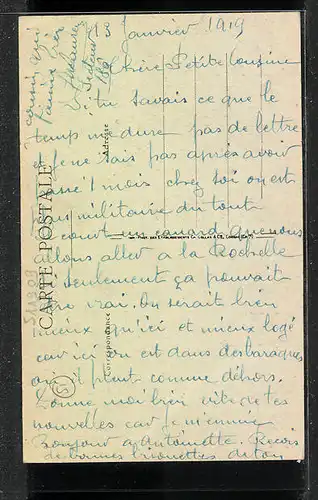 13 Janvier 1919
Chère Petite Cousine
si tu savais ce que le
temps me dure pas de lettre
et je ne sais pas après avoir
passé 1 mois chez soi on est
plus militaire du tout
court un canard que nous
allons aller a la Rochelle
si seulement ça pouvait
être vrai. On serait bien
mieux qu'ici et mieux logé
car ici on est dans des baraques
où il pleut comme dehors.
Donne moi bien vite de tes
nouvelles car je m'ennuie
Bonjour a Antoinette. Reçois
de bonnes de ton
cousin qui
t'aime bien
Secteur
CARTE POSTALE
Correspondance
Adresse